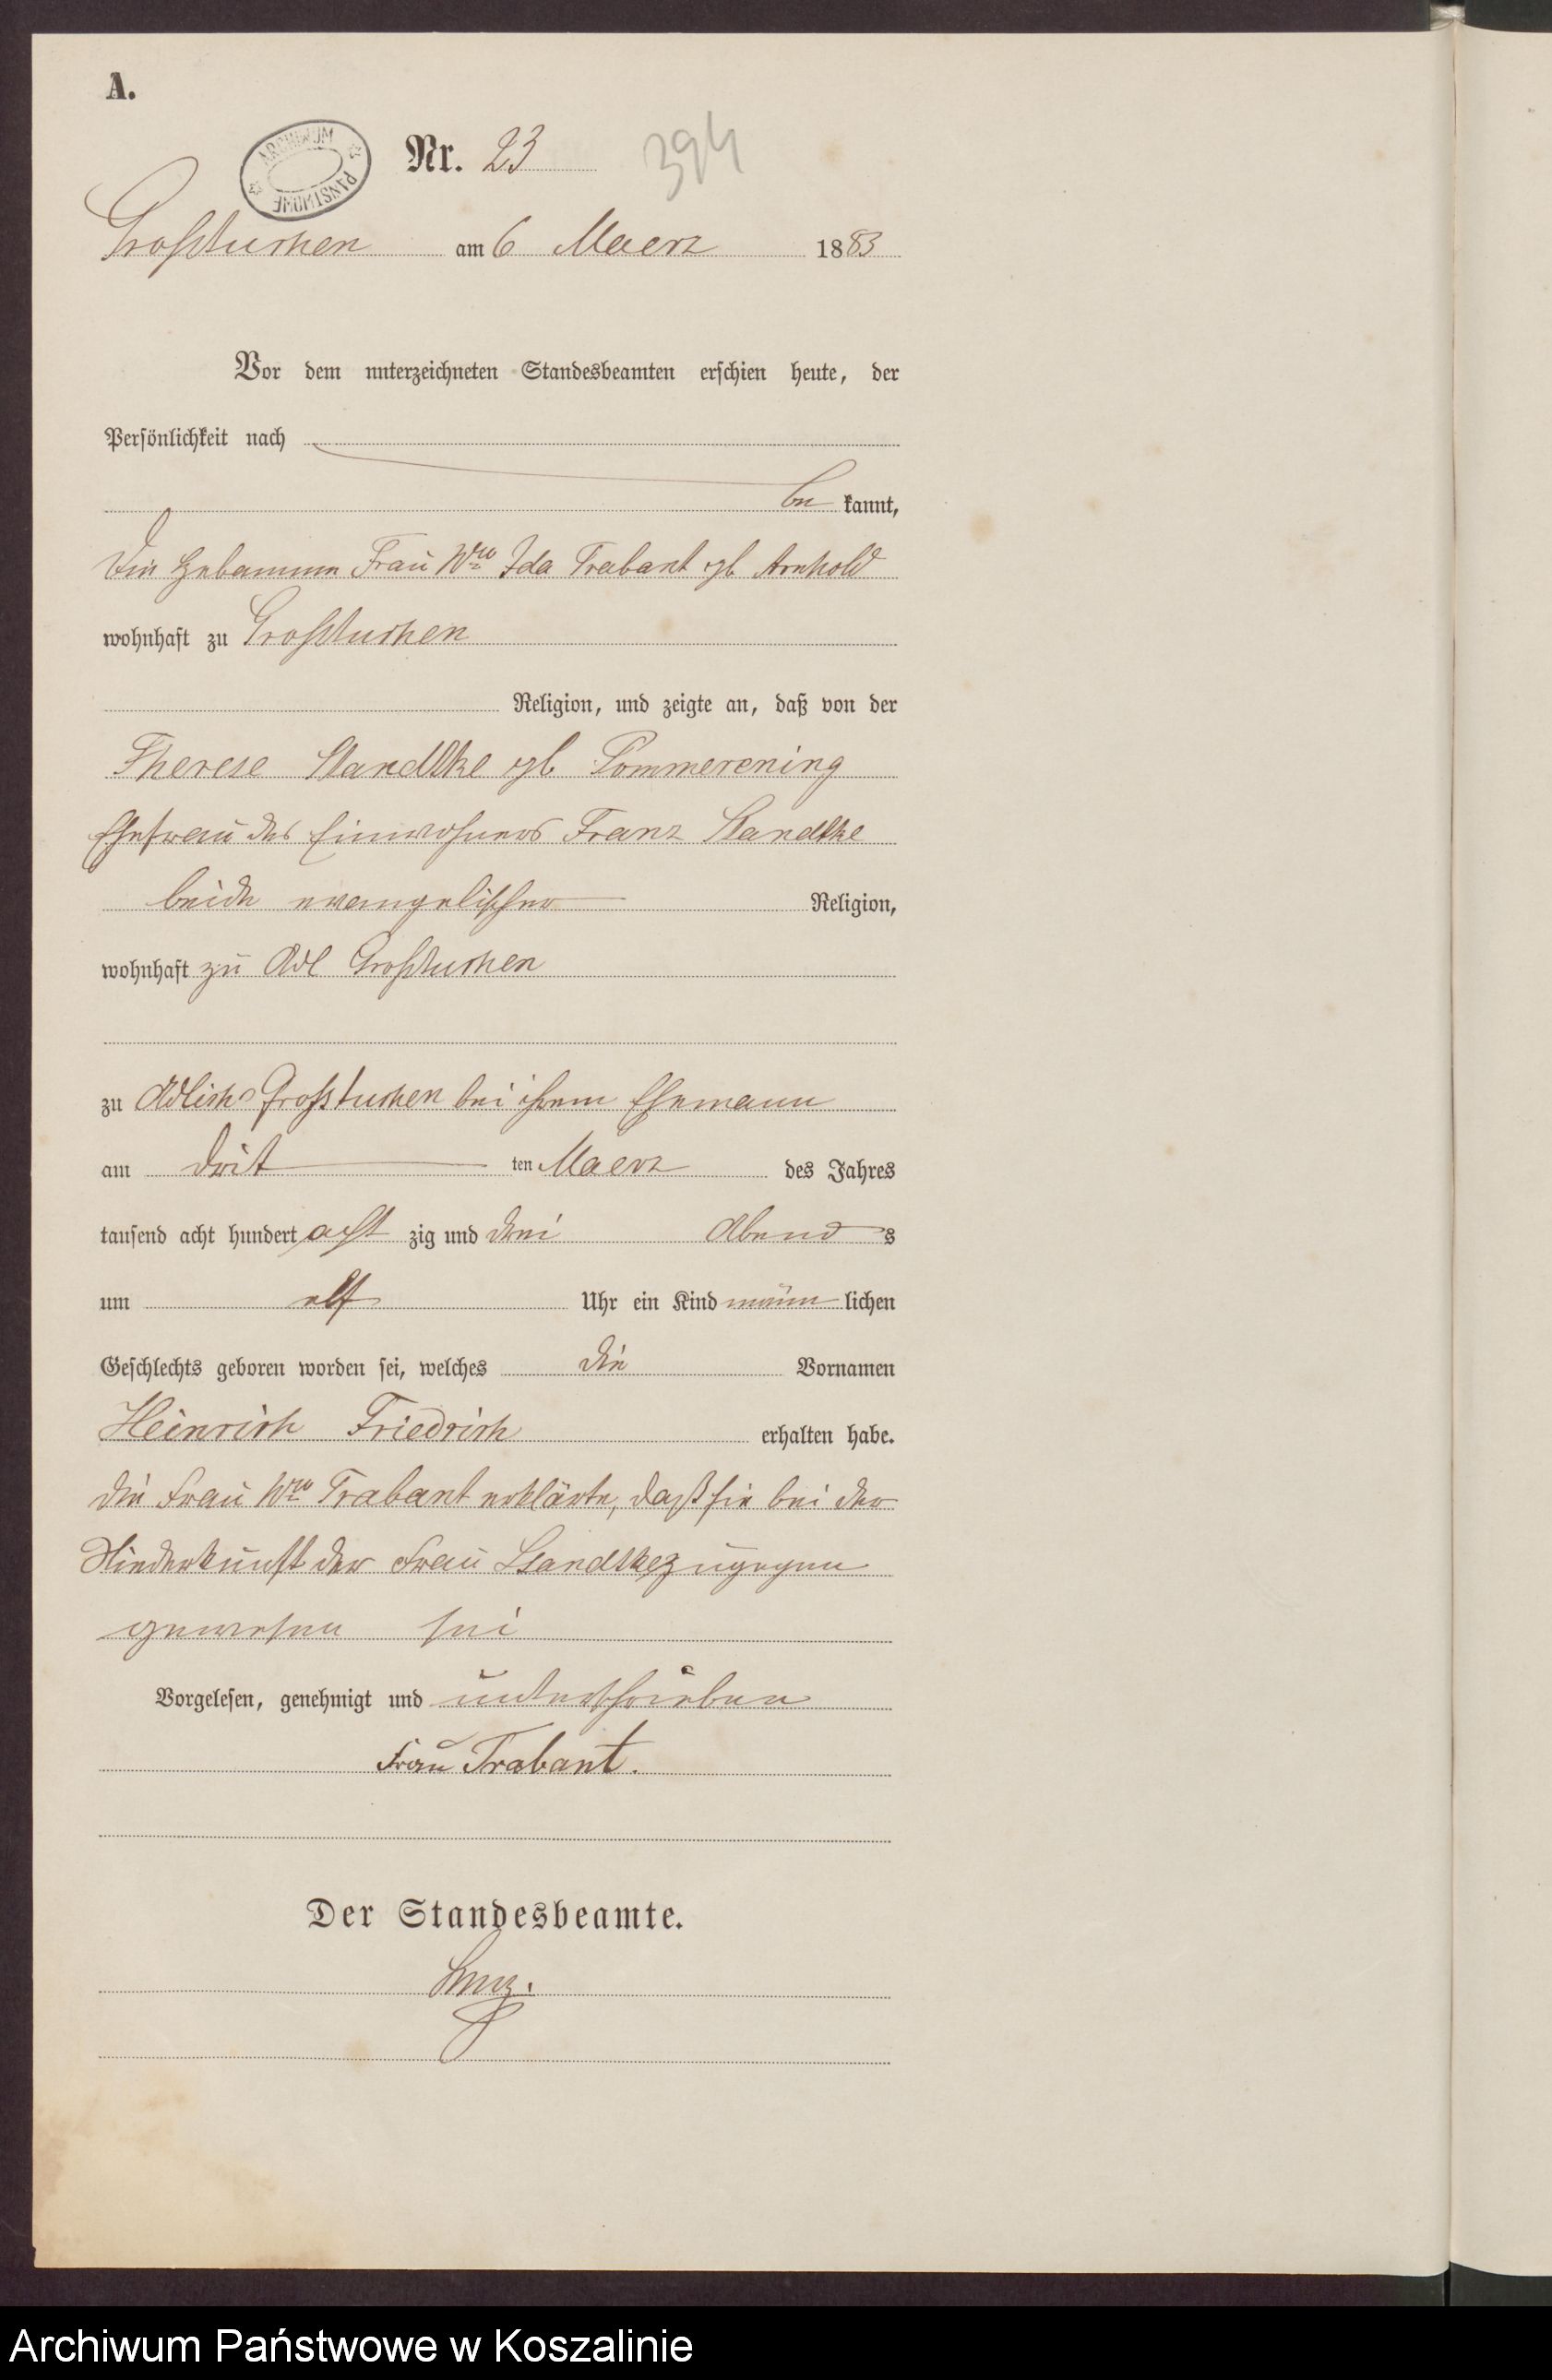 A.
ARCHIWUM PAŃSTWOWE
Nr. 23 394
Großtuchen am 6 Maerz 1883
Vor dem unterzeichneten Standesbeamten erschien heute, der
Persönlichkeit nach
be kannt,
die Hebamme Frau Wwe Ida Trabant geb Arnhold
wohnhaft zu Großtuchen
Religion, und zeigte an, daß von der
Therese geb Pommerening
Ehefrau des Einwohners Franz
beide evangelischer Religion,
wohnhaft zu Adl Großtuchen
zu Adlich Großtuchen bei ihrem Ehemann
am dritten Maerz des Jahres
tausend acht hundert acht zig und drei Abends
um elf Uhr ein Kind männ lichen
Geschlechts geboren worden sei, welches die Vornamen
Heinrich Friedrich erhalten habe.
die Frau Wwe Trabant erklärte, daß sie bei der
Niederkunft der Frau zugegen
gewesen sei
Vorgelesen, genehmigt und unterschrieben
Frau Trabant.
Der Standesbeamte.
Archiwum Państwowe w Koszalinie